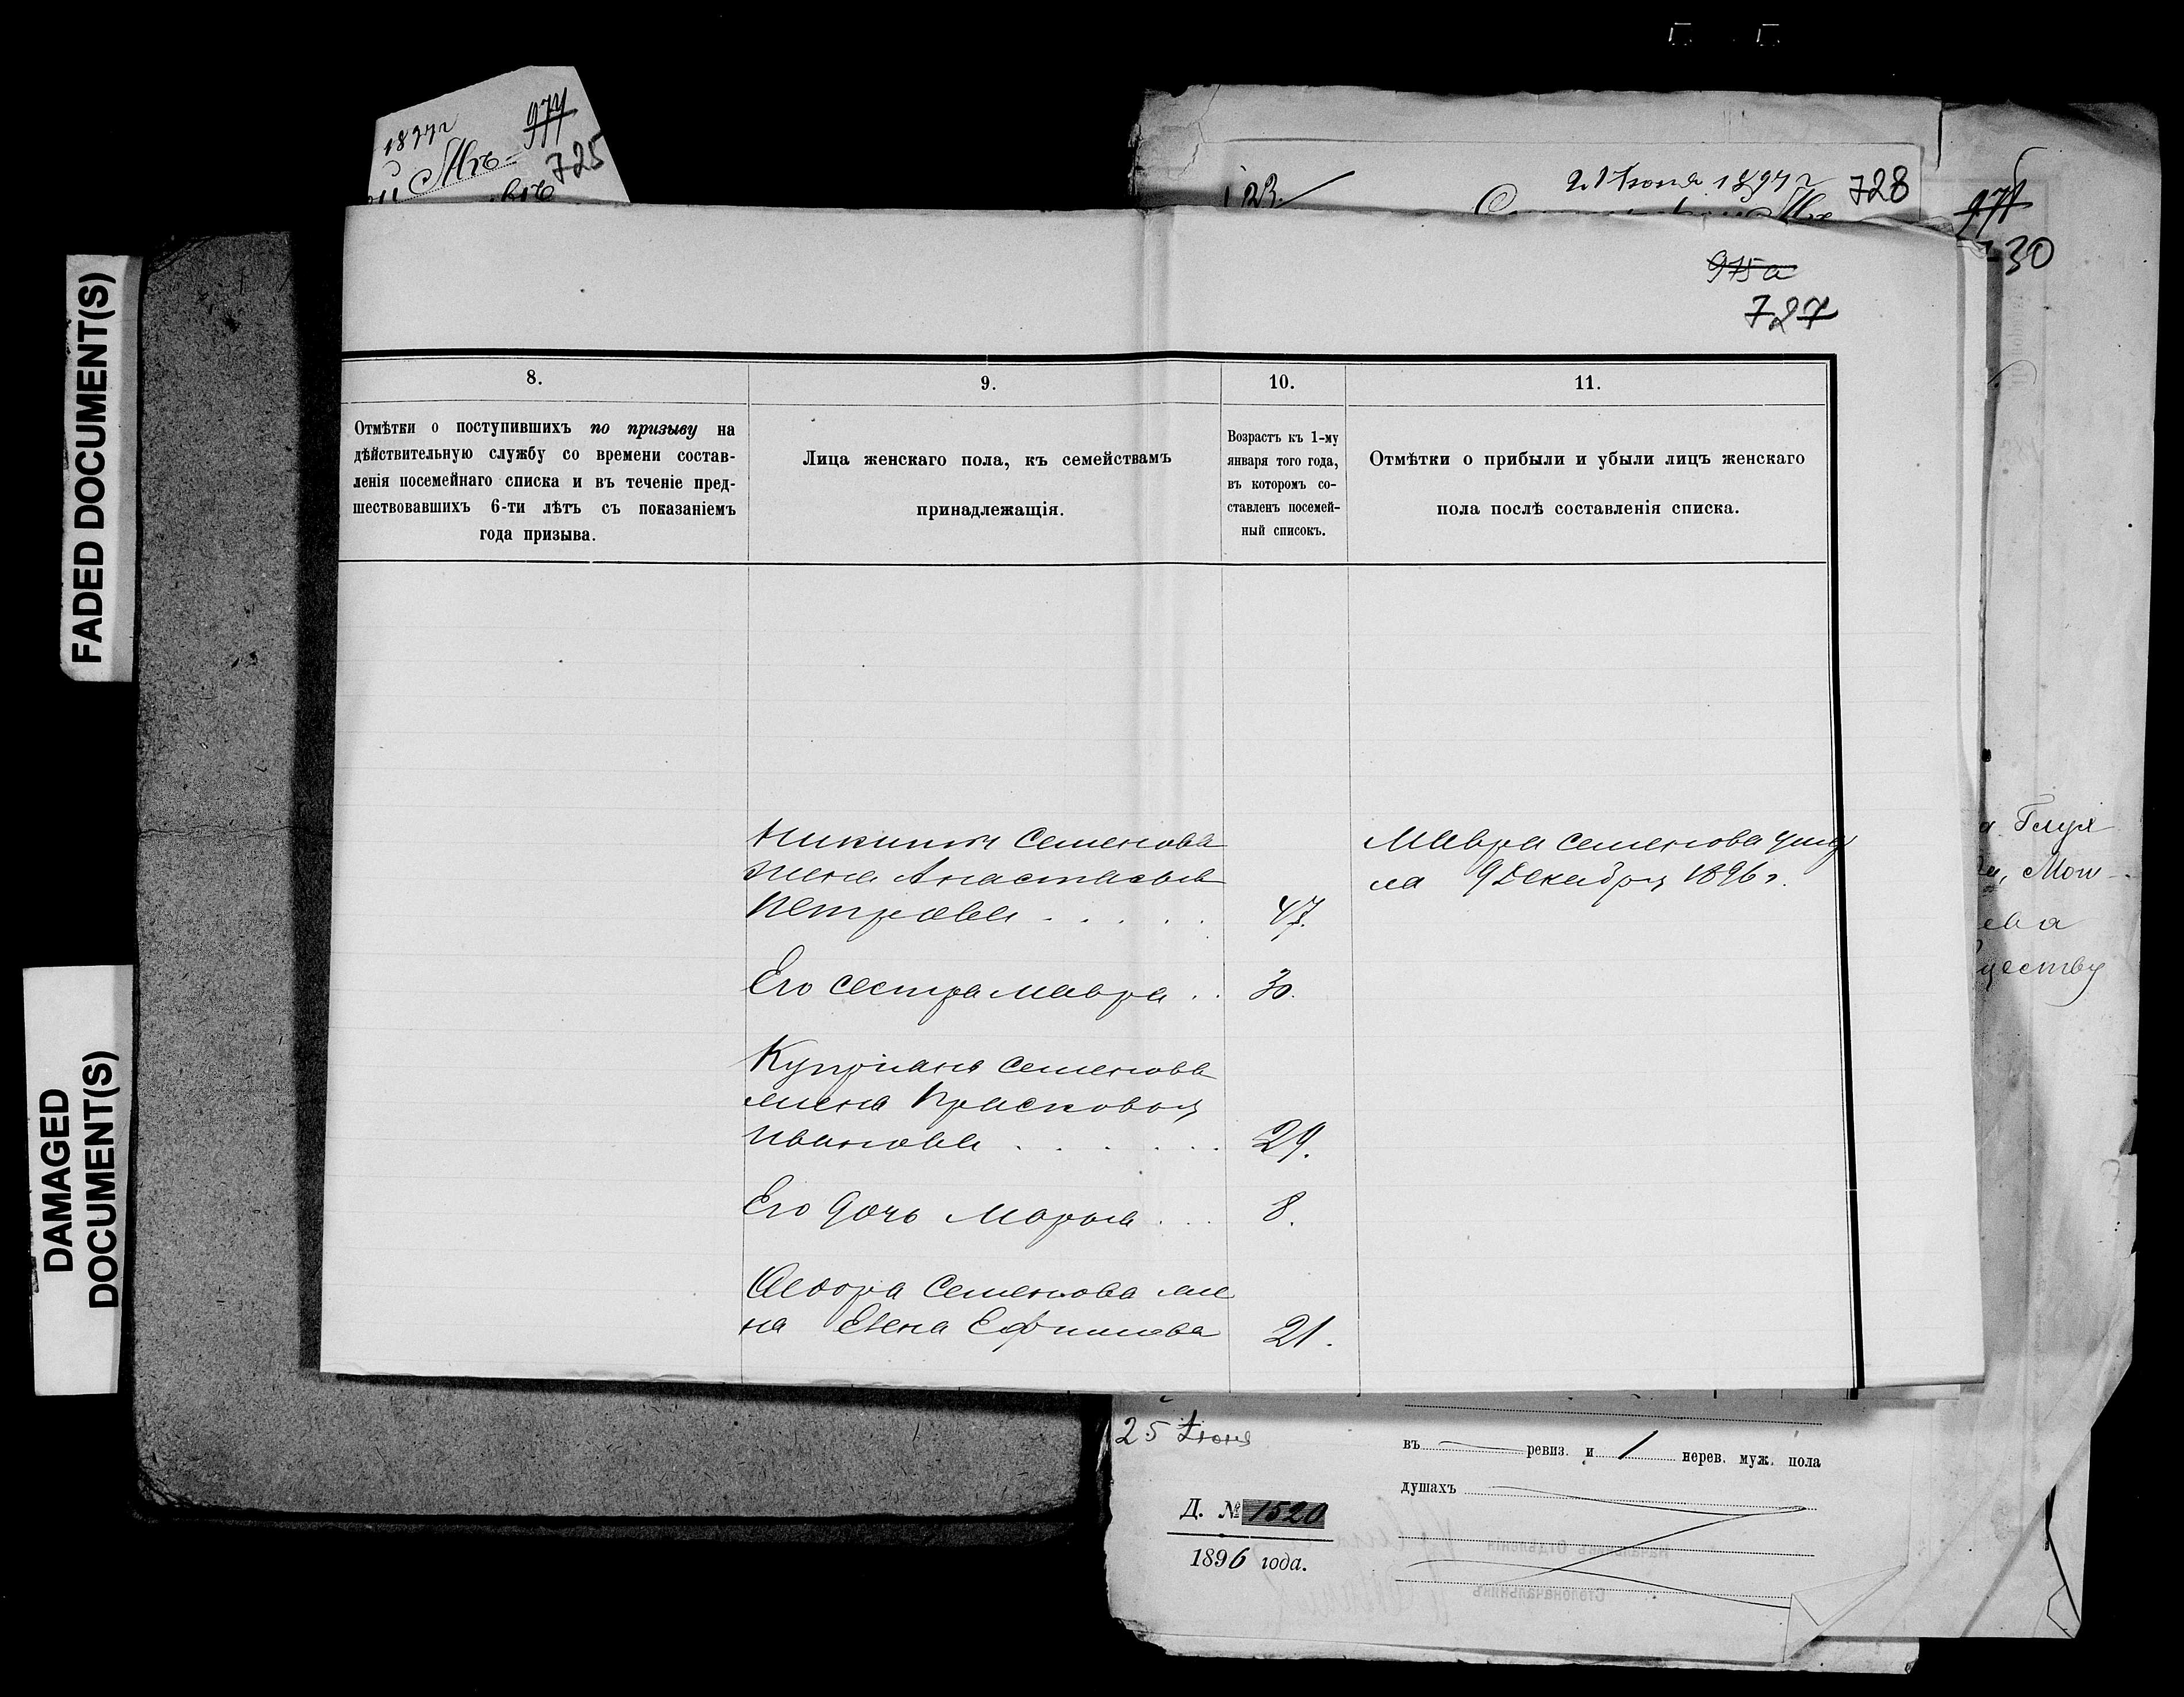 FADED DOCUMENT(S)
DAMAGED
DOCUMENT(S)
1897 г
974
725
21 Іюня 1897 г
728
30
975 а
727
8.
9.
10.
11.
Отмѣтки о поступившихъ по призыву на
дѣйствительную службу со времени состав-
ленія посемейнаго списка и въ теченіе пред-
шествовавшихъ 6-ти лѣтъ съ показаніемъ
года призыва.
Лица женскаго пола, къ семействамъ
принадлежащія.
Возрастъ къ 1-му
января того года,
въ которомъ со-
ставленъ посемей-
ный списокъ.
Отмѣтки о прибыли и убыли лицъ женскаго
пола послѣ составленія списка.
Никиты Семенова
жена Анастасья
Петрова . . . . . 47.
Его сестра Мавра . . 30.
Купріяна Семенова
жена Прасковья
Иванова . . . . . . 29.
Его дочь Марья . . . 8.
Федора Семенова же
на Елена Ефимова 21.
Мавра Семенова умер
ла 9 Декабря 1896 г.
25 Іюня
Д. № 1520
1896 года.
въ ревиз. и 1 нерев. муж. пола
душахъ
Начальникъ Отдѣленія
Столоначальникъ